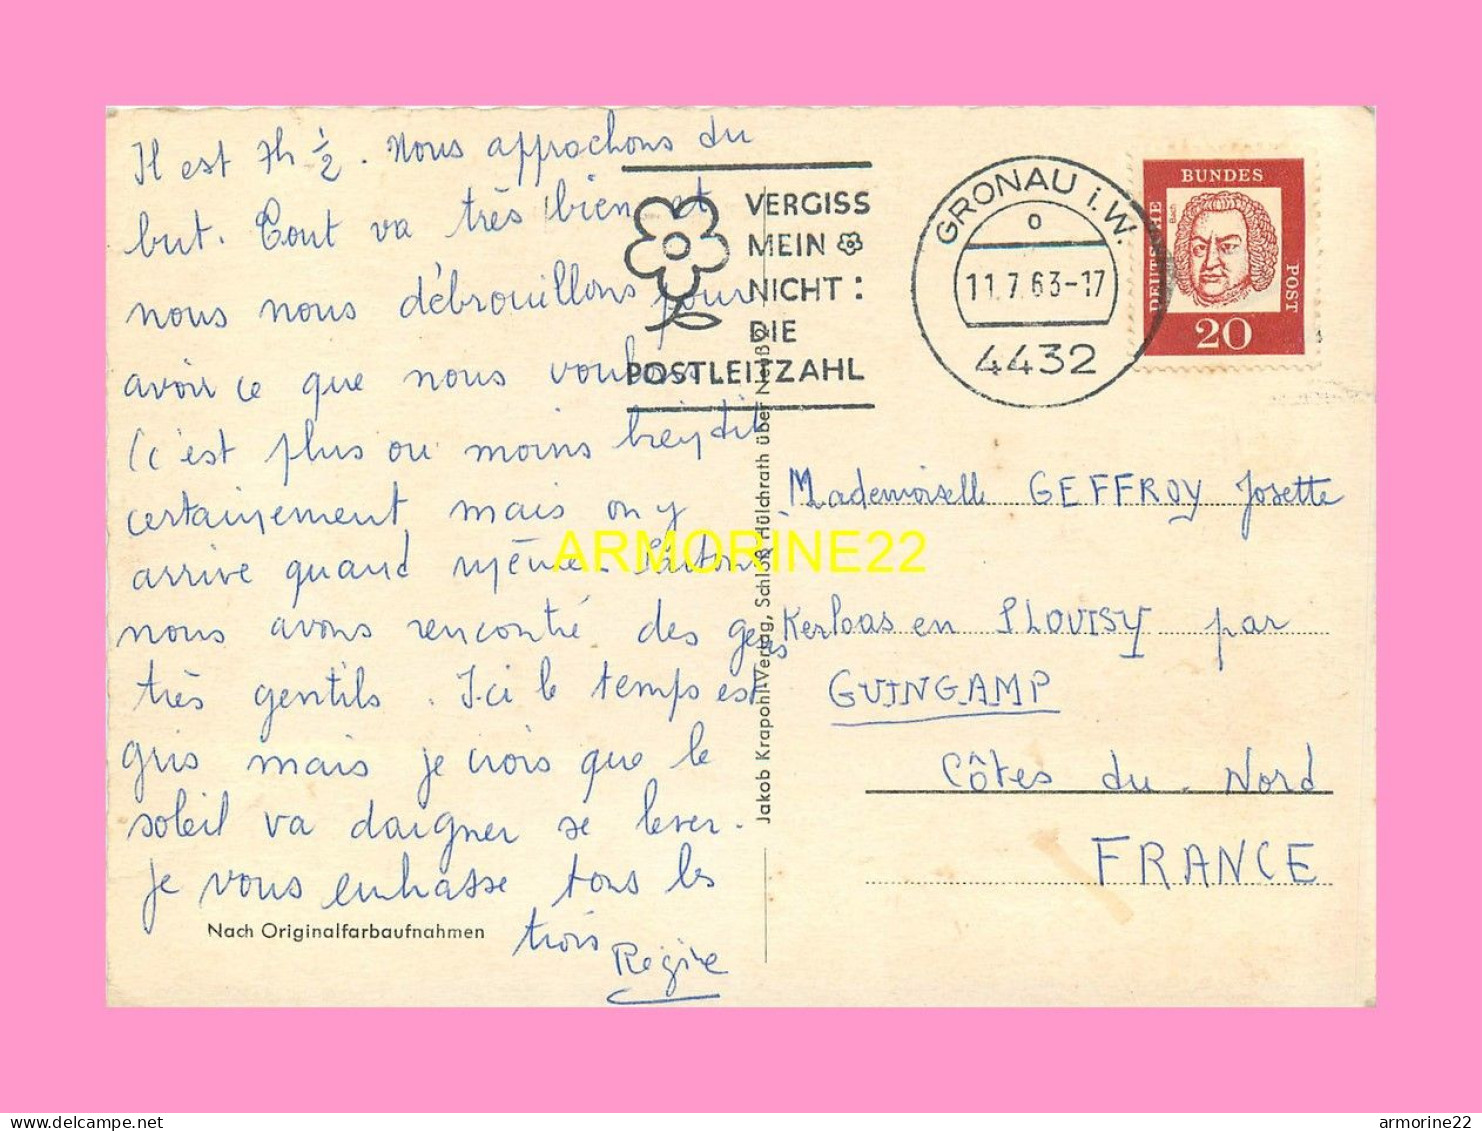 Il est 7h ½. Nous approchons du
but. Tout va très bien et
nous nous débrouillons pour
avoir ce que nous voulons
(c'est plus ou moins
certainement mais on y
arrive quand même.
nous avons rencontré des gens
très gentils. Ici le temps est
gris mais je crois que le
soleil va daigner se lever.
je vous embrasse tous les
trois
Régine
Nach Originalfarbaufnahmen
VERGISS
MEIN
NICHT:
DIE
POSTLEITZAHL
GRONAU i.W.
11.7.63-17
4432
DEUTSCHE
BUNDES
POST
Bach
20
Jakob Krapohl-Verlag, Schloß Hülchrath über Neuß 2
Mademoiselle GEFFROY Josette
Kerloas en PLOUISY par
GUINGAMP
Côtes du Nord
FRANCE
ARMORINE22
delcampe.net
armorine22